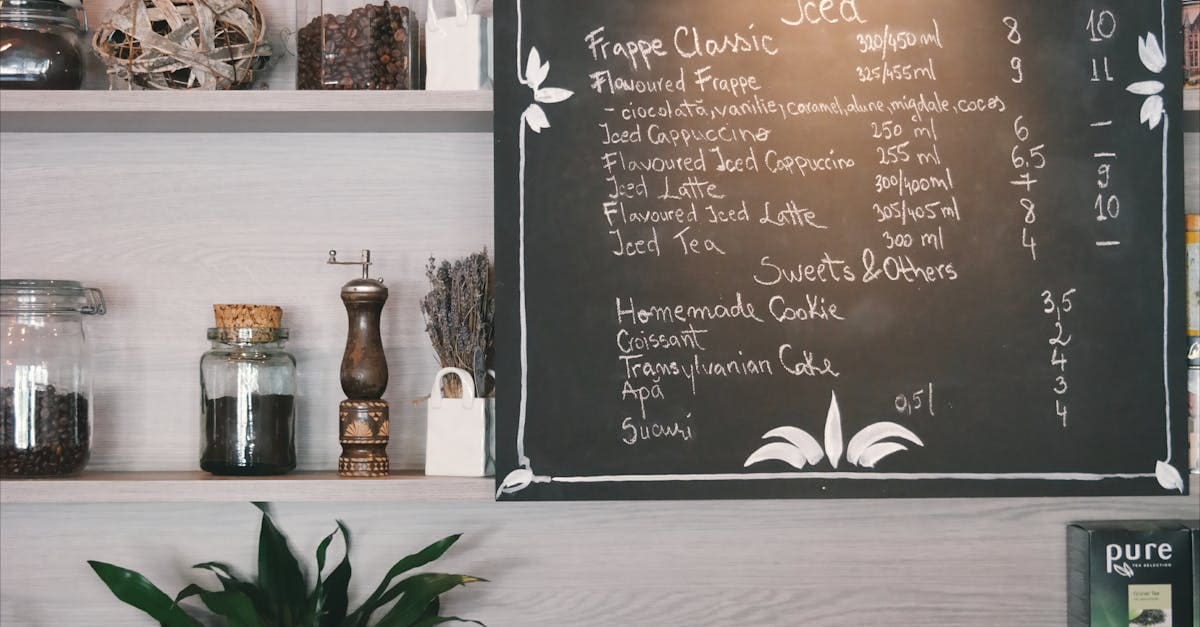 Iced
Frappe Classic 320/450 ml 8 10
Flavoured Frappe 325/455ml 9 11
- ciocolată, vanilie, caramel, alune, migdale, cocos
Iced Cappuccino 250 ml 6 –
Flavoured Iced Cappuccino 255 ml 6,5 –
Iced Latte 300/400ml 7 9
Flavoured Iced Latte 305/405ml 8 10
Iced Tea 300 ml 4 –
Sweets & Others
Homemade Cookie 3,5
Croissant 2
Transylvanian Cake 4
Apă 0,5l 3
Sucuri 4
pure
TEA SELECTION